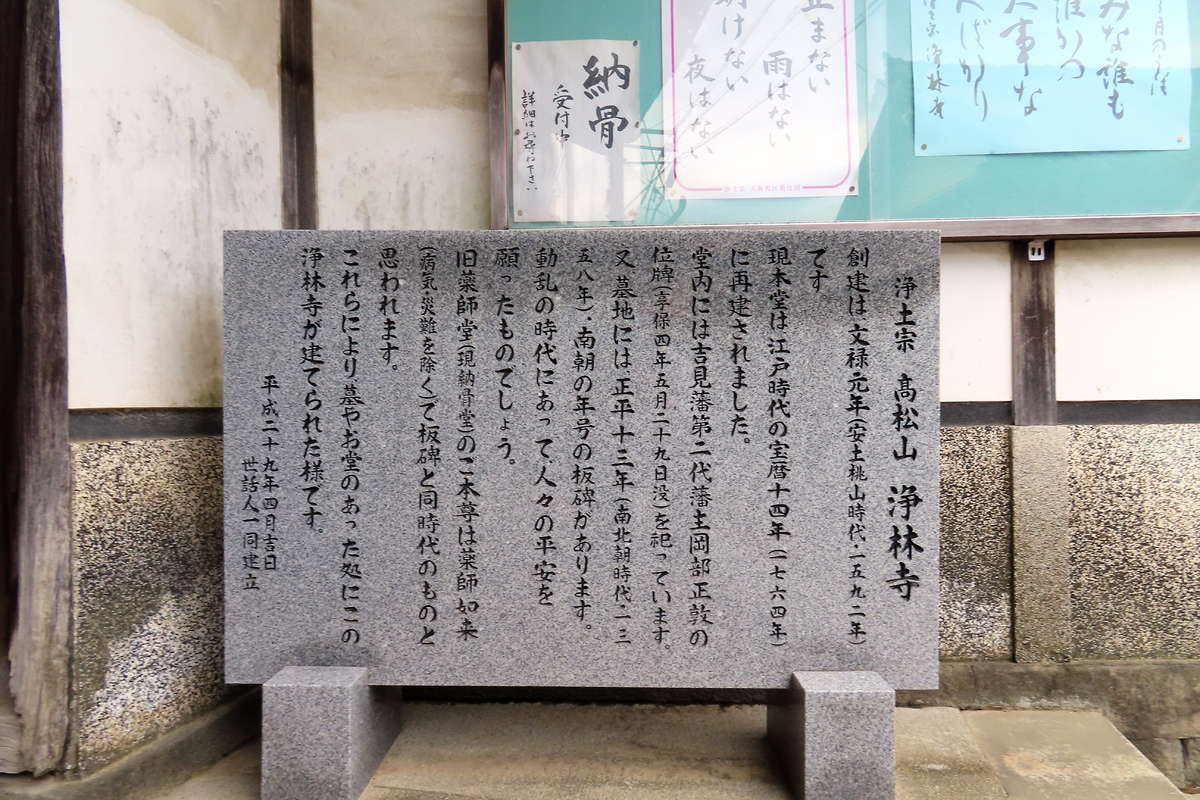 浄土宗 髙松山 浄林寺
創建は文禄元年(安土桃山時代・一五九二年)
です
現本堂は江戸時代の宝暦十四年(一七六四年)
に再建されました。
堂内には吉見藩第二代藩主岡部正敦の
位牌(享保四年五月二十九日没)を祀っています。
又墓地には、正平十三年(南北朝時代・一三
五八年)・南朝の年号の板碑があります。
動乱の時代にあって、人々の平安を
願ったものでしょう。
旧薬師堂(現納骨堂)のご本尊は薬師如来
(病気・災難を除く)で板碑と同時代のものと
思われます。
これらにより墓やお堂のあった処にこの
浄林寺が建てられた様です。
平成二十九年四月吉日
世話人一同建立
みな誰も
誰かの
大事な
浄林寺
止まない
雨はない
明けない
夜はない
納骨
受付中
詳細はお尋ね下さい